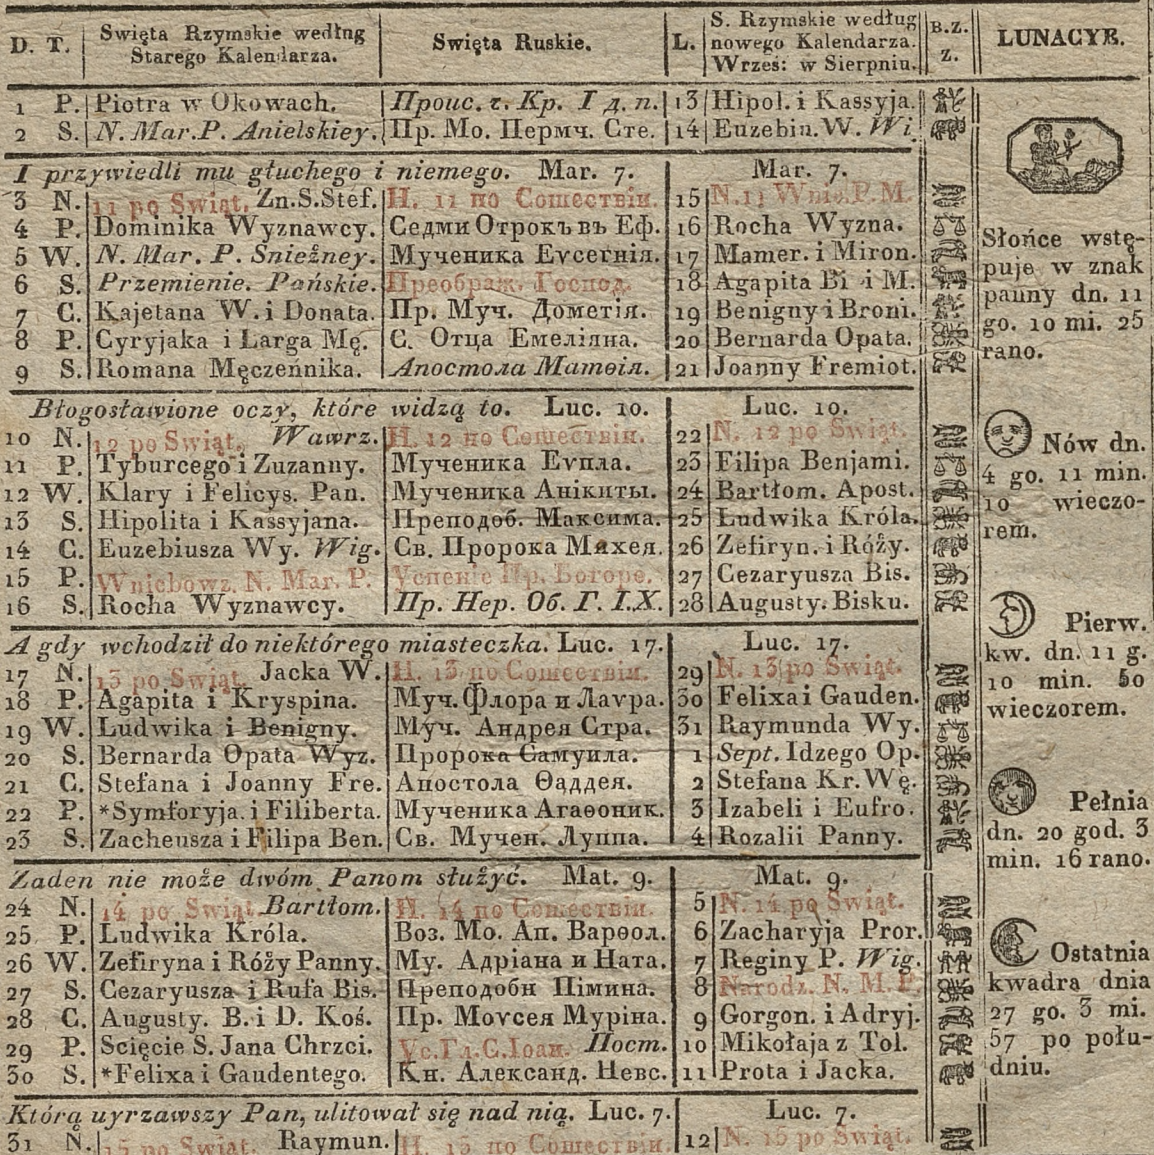 D. T. | Swięta Rzymskie według Starego Kalendarza. | Swięta Ruskie. | L. | S. Rzymskie według nowego Kalendarza. Wrzes: w Sierpniu. | B.Z. Z. | LUNACYE.
1 P. Piotra w Okowach. Проис. ч. Кр. I д. п. 13 Hipol. i Kassyja.
2 S. N. Mar.P. Anielskiey. Пр. Мо. Пермч. Сте. 14 Euzebiu.W. Wi
I przywiedli mu głuchego i niemego. Mar. 7. Mar. 7.
3 N. 11 po Swiąt. Zn.S.Stef. Н. 11 по Сошествіи. 15 N.11 Wnie.P.M.
4 P. Dominika Wyznawcy. Седми Отрокъ въ Еф. 16 Rocha Wyzna.
5 W. N. Mar. P. Snieżney. Мученика Еѵсегнія. 17 Mamer. i Miron.
6 S. Przemienie. Pańskie. Преображ. Господ. 18 Agapita Bi i M.
7 C. Kajetana W. i Donata. Пр. Муч. Дометія. 19 Benigny i Broni.
8 P. Cyryjaka i Larga Mę. С. Отца Емеліяна. 20 Bernarda Opata.
9 S. Romana Męczeńnika. Апостола Матѳія. 21 Joanny Fremiot.
Błogosławione oczy, które widzą to. Luc. 10. Luc. 10.
10 N. 12 po Swiąt. Wawrz. Н. 12 по Сошествіи. 22 N. 12 po Swiąt.
11 P. Tyburcego i Zuzanny. Мученика Еѵпла. 23 Filipa Benjami.
12 W. Klary i Felicys. Pan. Мученика Анікиты. 24 Bartłom. Apost.
13 S. Hipolita i Kassyjana. Преподоб. Максима. 25 Ludwika Króla.
14 C. Euzebiusza Wy. Wig. Св. Пророка Михея. 26 Zefiryn. i Róży.
15 P. Wniebowz. N. Mar. P. Успеніе Пр. Богоро. 27 Cezaryusza Bis.
16 S. Rocha Wyznawcy. Пр. Нер. Об. Г. I.X. 28 Augusty. Bisku.
A gdy wchodził do niektórego miasteczka. Luc. 17. Luc. 17.
17 N. 13 po Swiąt. Jacka W. Н. 13 по Сошествіи. 29 N. 13 po Swiąt.
18 P. Agapita i Kryspina. Муч. Флора и Лаѵра. 30 Felixa i Gauden.
19 W. Ludwika i Benigny. Муч. Андрея Стра. 31 Raymunda Wy.
20 S. Bernarda Opata Wyz. Пророка Самуила. 1 Sept. Idzego Op.
21 C. Stefana i Joanny Fre. Апостола Ѳаддея. 2 Stefana Kr. Wę.
22 P. *Symforyja. i Filiberta. Мученика Агаѳоник. 3 Izabeli i Eufro.
23 S. Zacheusza i Filipa Ben. Св. Мучен. Луппа. 4 Rozalii Panny.
Zaden nie może dwóm Panom służyć. Mat. 9. Mat. 9.
24 N. 14 po Swiąt. Bartłom. Н. 14 по Сошествіи. 5 N. 14 po Swiąt.
25 P. Ludwika Króla. Воз. Мо. Ап. Варѳол. 6 Zacharyja Pror.
26 W. Zefiryna i Róży Panny. Му. Адріана и Ната. 7 Reginy P. Wig.
27 S. Cezaryusza i Rufa Bis. Преподобн Пімина. 8 Narodz. N. M. P.
28 C. Augusty. B. i D. Koś. Пр. Моѵсея Муріна. 9 Gorgon. i Adryj.
29 P. Scięcie S. Jana Chrzci. Ус. Гл. С. Іоан. Пост. 10 Mikołaja z Tol.
30 S. *Felixa i Gaudentego. Кн. Александ. Невс. 11 Prota i Jacka.
Którą uyrzawszy Pan, ulitował się nad nią. Luc. 7. Luc. 7.
31 N. 15 po Swiąt. Raymun. Н. 15 по Сошествіи. 12 N. 15 po Swiąt.
Słońce wstę-
puje w znak
panny dn. 11
go. 10 mi. 25
rano.
Nów dn.
4 go. 11 min.
10 wieczo-
rem.
Pierw.
kw. dn. 11 g.
10 min. 50
wieczorem.
Pełnia
dn. 20 god. 3
min. 16 rano.
Ostatnia
kwadra dnia
27 go. 3 mi.
57 po połu-
dniu.